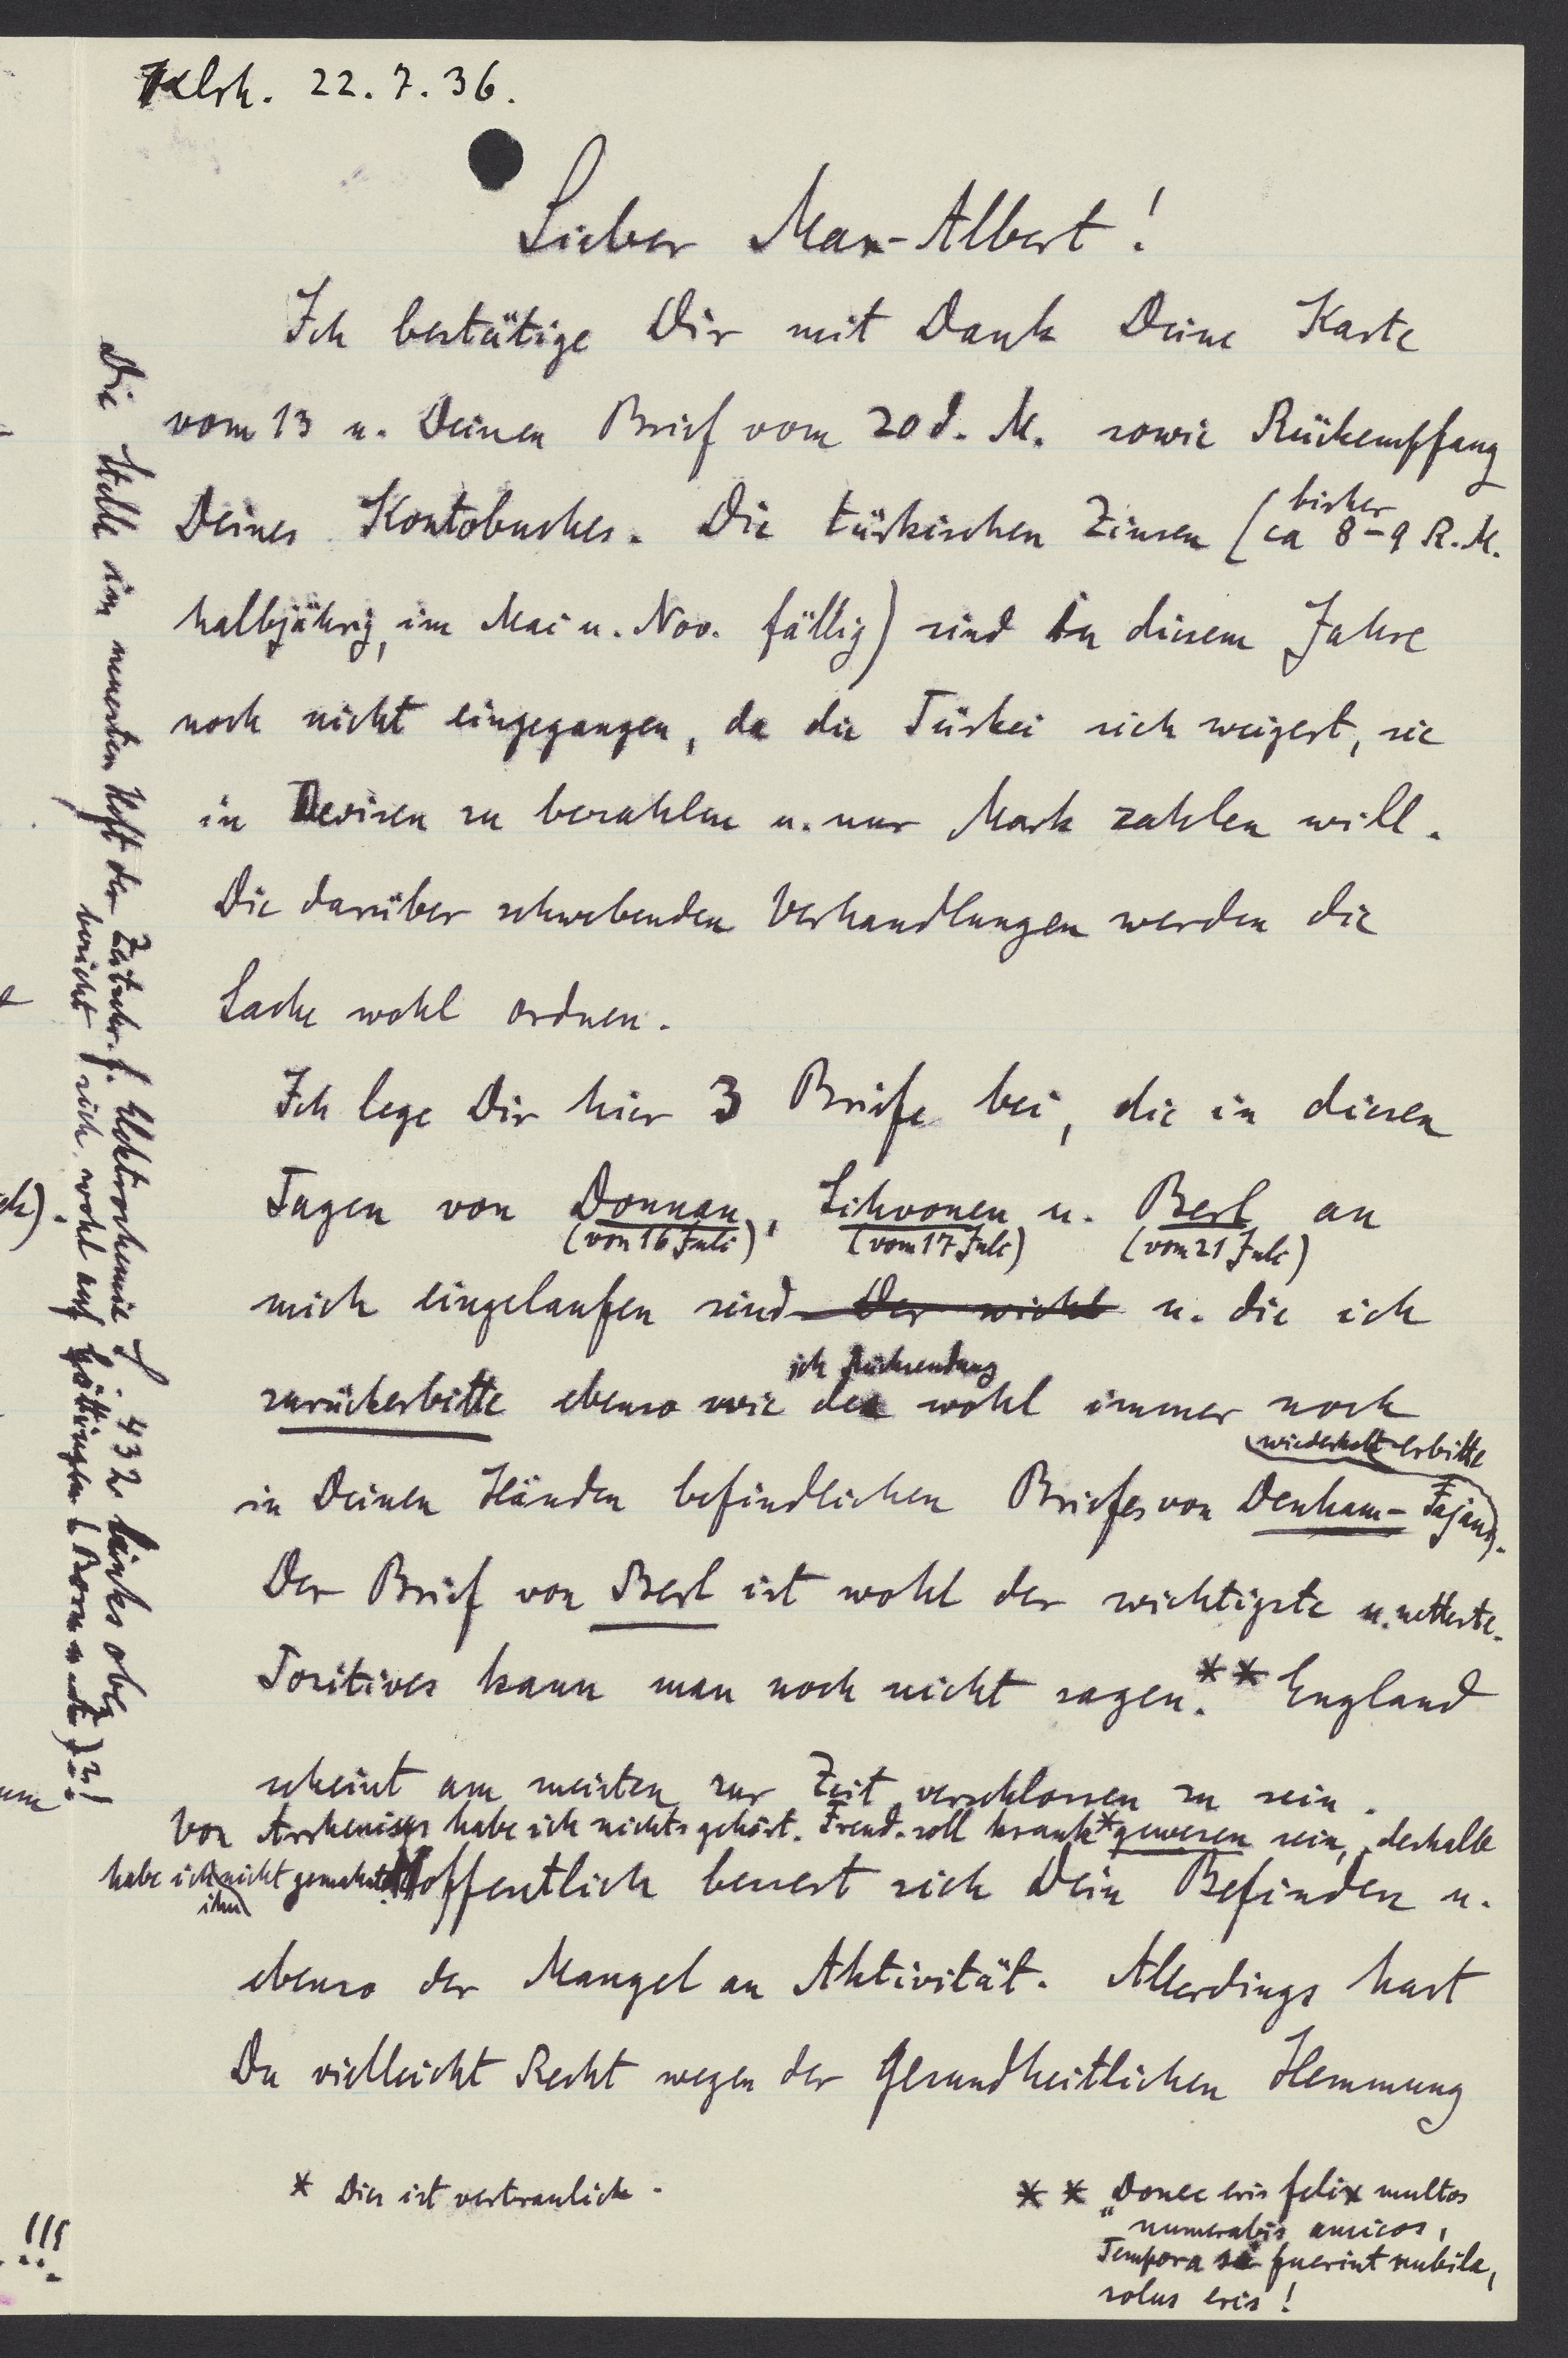 Klrh. 22.7.36.
Lieber Max-Albert!
Ich bestätige Dir mit Dank Deine Karte
vom 13 u. Deinen Brief vom 20 d. M. sowie Rückempfang
Deines Kontobuches. Die türkischen Zinsen (bisher ca 8-9 R.M.
halbjährig, im Mai u. Nov. fällig) sind in diesem Jahre
noch nicht eingegangen, da die Türkei sich weigert, sie
in Devisen zu bezahlen u. nur Mark zahlen will.
Die darüber schwebenden Verhandlungen werden die
Sache wohl ordnen.
Ich lege Dir hier 3 Briefe bei, die in diesen
Tagen von Donnan, Sihvonen u. Berl an
(von 16 Juli) (vom 17 Juli) (vom 21 Juli)
mich eingelaufen sind Der wicht u. die ich
ich Rücksendung
zurückerbitte ebenso wie der wohl immer noch
wiederholt erbitte
in Deinen Händen befindlichen Briefes von Denham-Fajans.
Der Brief von Berl ist wohl der wichtigste u. netteste.
Positives kann man noch nicht sagen.** England
scheint am meisten zur Zeit verschlossen zu sein.
Von Arrhenius habe ich nichts gehört. Freud. soll krank* gewesen sein, deshalb
habe ich ihn nicht gemahnt. Hoffentlich bessert sich Dein Befinden u.
ebenso der Mangel an Aktivität. Allerdings hast
Du vielleicht Recht wegen der Gesundheitlichen Hemmung
* Dies ist vertraulich.
** "Donec eris felix multos
numerabis amicos,
Tempora si fuerint nubila,
solus eris!
Die Stelle im neuesten Heft der Zeitschr. f. Elektrochemie S 432 links oben
bezieht sich wohl auf Göttingen (Born u. ) ?!
ch)
um
!!!